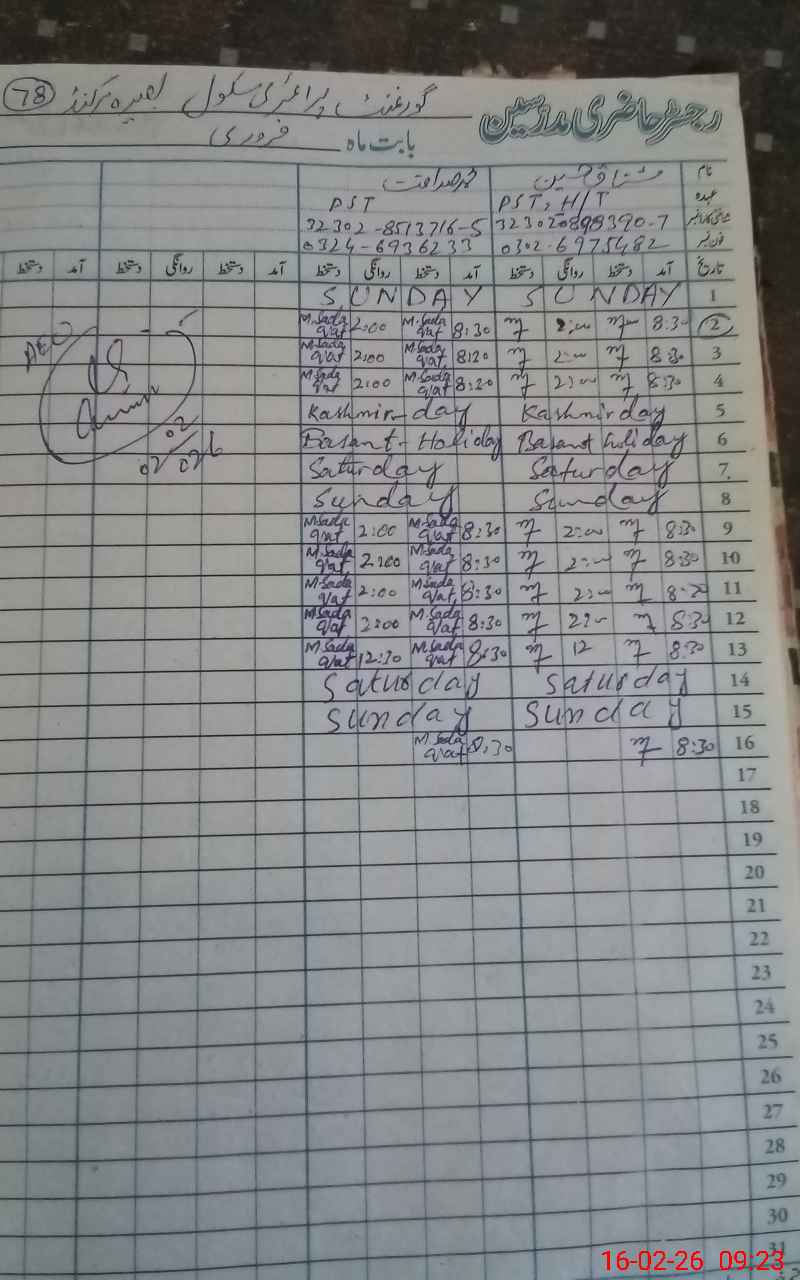 رجسٹر حاضری مدرسین گورنمنٹ پرائمری سکول بصیرہ 78
بابت ماہ فروری
نام مشتاق حسین محمد صداقت
عہدہ PST, H/T PST
32302-8513716-5
فون نمبر 0302-6975482 0324-6936233
تاریخ آمد دستخط روانگی دستخط آمد دستخط روانگی دستخط آمد دستخط روانگی دستخط آمد دستخط
1 SUNDAY SUNDAY
2 8:30 2:00 8:30 M.Sada qat 2:00 M.Sada qat AEO
3 8:30 2:00 8:20 M.Sada qat 2:00 M.Sada qat
4 8:30 2:00 8:20 M.Sada qat 2:00 M.Sada qat
5 Kashmir day Kashmir-day
6 Basant Holiday Basant-Holiday
02
02/026
7 Saturday Saturday
8 Sunday Sunday
9 8:30 2:00 8:30 M.Sada qat 2:00 M.Sada qat
10 8:30 2:00 8:30 M.Sada qat 2:00 M.Sada qat
11 8:30 2:00 8:30 M.Sada qat 2:00 M.Sada qat
12 8:30 2:00 8:30 M.Sada qat 2:00 M.Sada qat
13 8:30 12 8:30 M.Sada qat 12:30 M.Sada qat
14 Saturday Saturday
15 Sunday Sunday
16 8:30 8:30 M.Sada qat
17
18
19
20
21
22
23
24
25
26
27
28
29
30
31
16-02-26 09:23